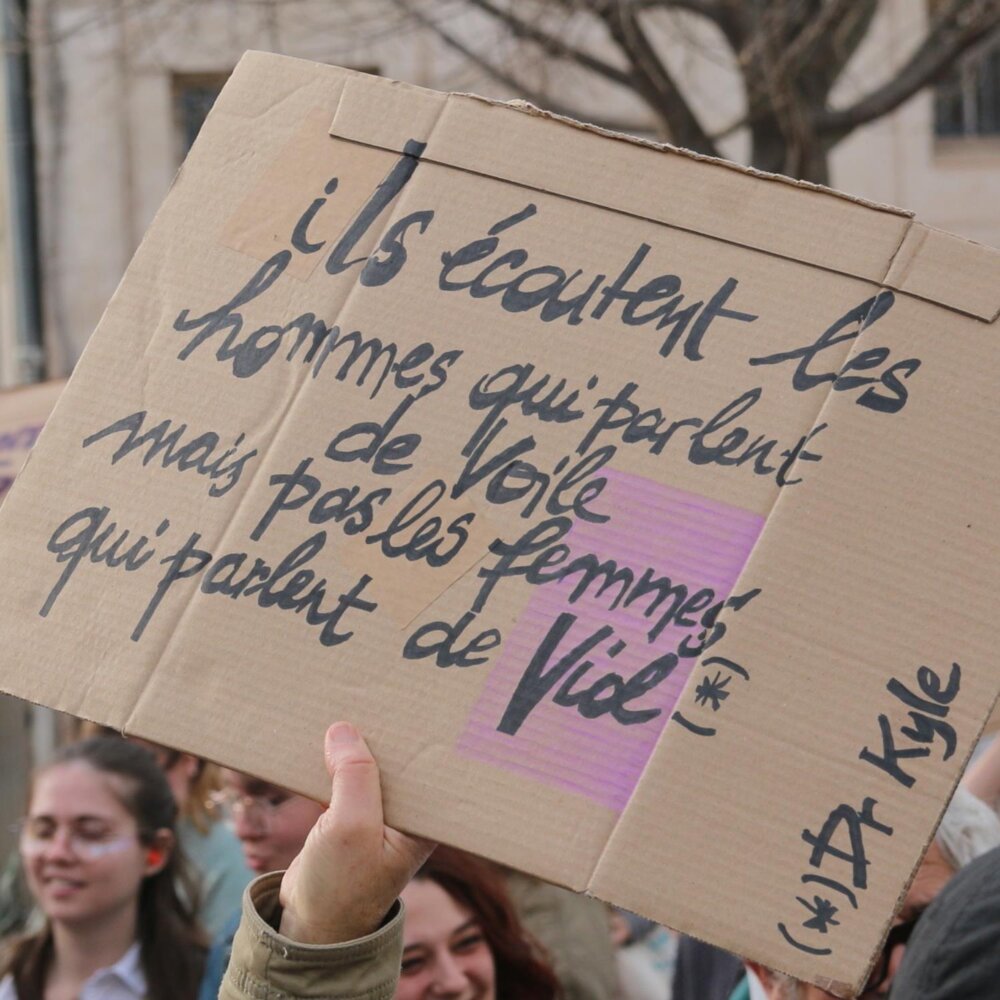 ils écoutent les
hommes qui parlent
de Voile
mais pas les femmes
qui parlent de Viol (*)
(*) Dr Kyle